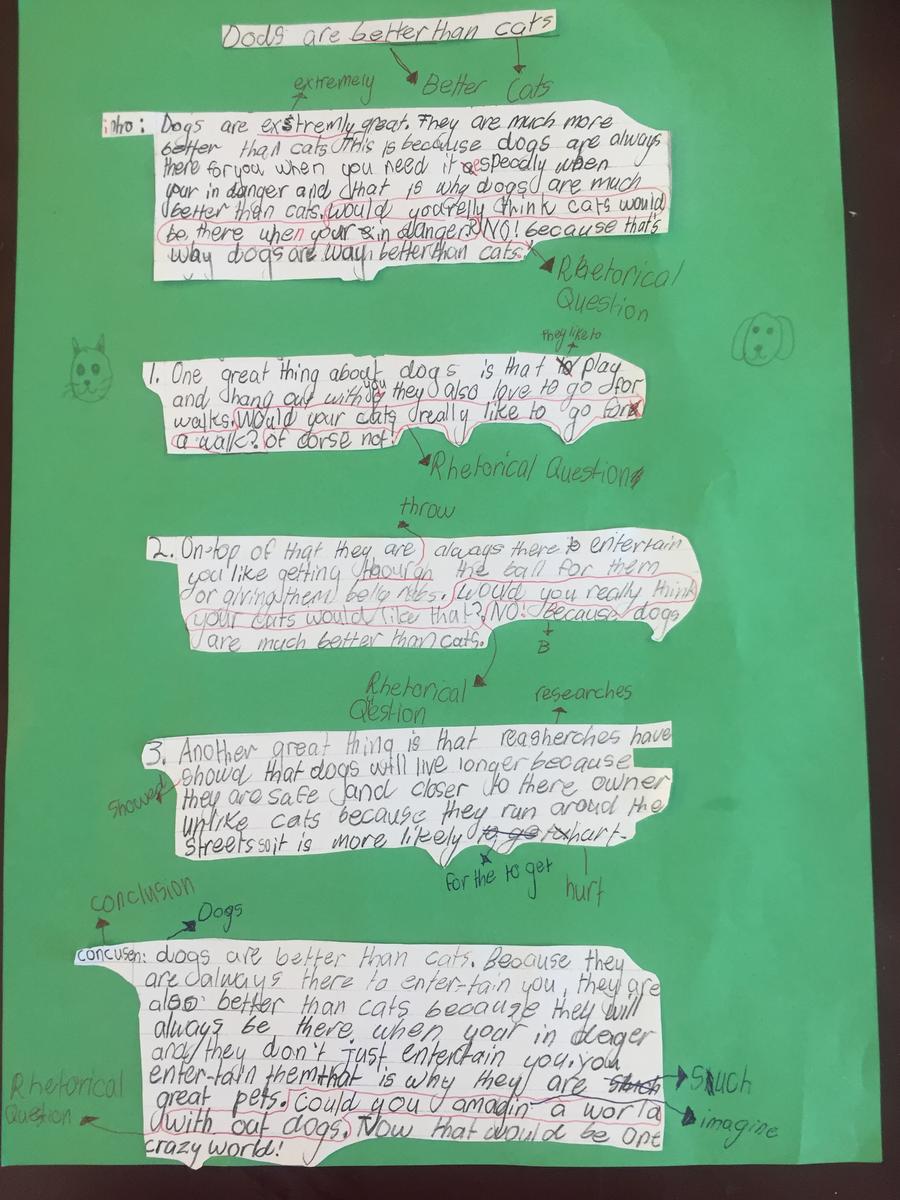 Dods are better than cats
extremely Better Cats
intro: Dogs are exstremly great. They are much more
better than cats This is because dogs are always
there for you when you need it especally when
your in danger and that is why dogs are much
better than cats. Would you relly think cats would
be there when your in danger? NO! because that's
why dogs are way better than cats.
Rhetorical
Question
they like to
1. One great thing about dogs is that to play
and hang out with you they also love to go for
walks. Would your cats really like to go for
a walk? of corse not!
Rhetorical Question
throw
2. On-top of that they are always there to entertain
you like getting thourgh the ball for them
or giving them belly rubs. Would you really think
your cats would like that? NO! because dogs
are much better than cats.
B
Rhetorical
Qestion
researches
3. Another great thing is that reasherches have
showd that dogs will live longer because
they are safe and closer to there owner
unlike cats because they run aroud the
streets so it is more likely to ge to hart.
showed
for the to get
hurt
conclusion
Dogs
concusen: dogs are better than cats. Because they
are always there to enter-tain you, they are
also better than cats because they will
always be there when your in deger
and they don't just entertain you. you
enter-tain them that is why they are such
great pets. Could you amagin a world
with out dogs. Now that would be one
crazy world!
Such
imagine
Rhetorical
Question